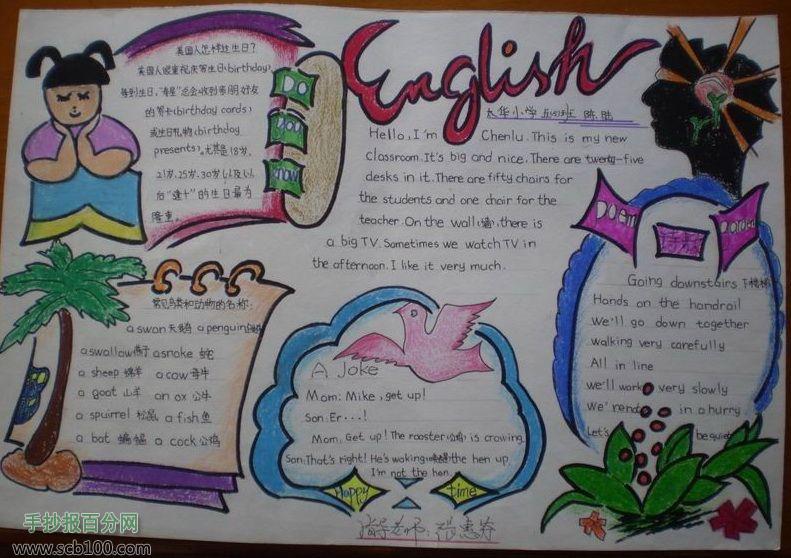 美国人怎样过生日?
美国人很重视庆寄生日(birthday),
每到生日,"寿星"总会收到亲朋好友
的贺卡(birthday cards)
或生日礼物(birthday
presents),尤其是18岁、
21岁、25岁、30岁以及以
后"逢十"的生日最为
隆重。
Do
you
know
English
大华小学 班 陈
Hello, I'm Chenlu. This is my new
classroom. It's big and nice. There are twenty-five
desks in it. There are fifty chairs for
the students and one chair for the
teacher. On the wall(墙), there is
a big TV. Sometimes we watch TV in
the afternoon. I like it very much.
Poem
诗
Garden
Going downstairs 下楼梯
Hands on the handrail
We'll go down together
walking very carefully
All in line
we'll work very slowly
We're not in a hurry
Let's be quiet
常见鸟类和动物的名称:
a swan 天鹅 a penguin 企鹅
a swallow 燕子 a snake 蛇
a sheep 绵羊 a cow 母牛
a goat 山羊 an ox 公牛
a spuirrel 松鼠 a fish 鱼
a bat 蝙蝠 a cock 公鸡
A Joke
Mom: Mike, get up!
Son: Er···!
Mom: Get up! The rooster(公鸡) is crowing.
Son: That's right! He's waking(唤醒) the hen up.
I'm not the hen.
Happy time
指导老师:张惠芬
手抄报百分网
www.scb100.com